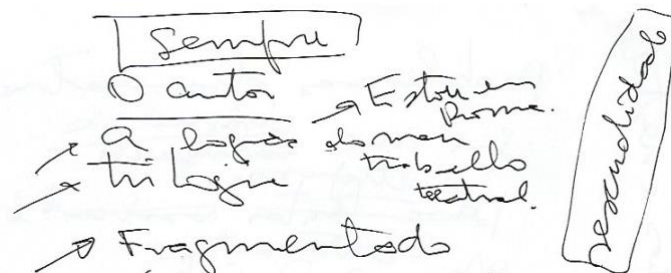 sempre
O autor
→ Estou em
Roma.
→ a lógica do meu
trabalho
teatral.
→ trilogia
→ Fragmentado
sexualidade